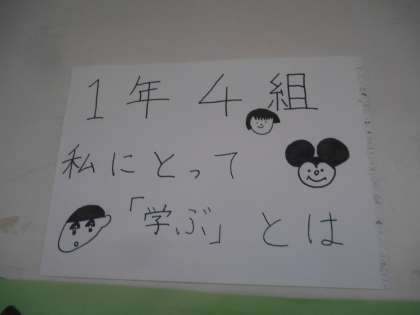 1年4組
私にとって
「学ぶ」とは